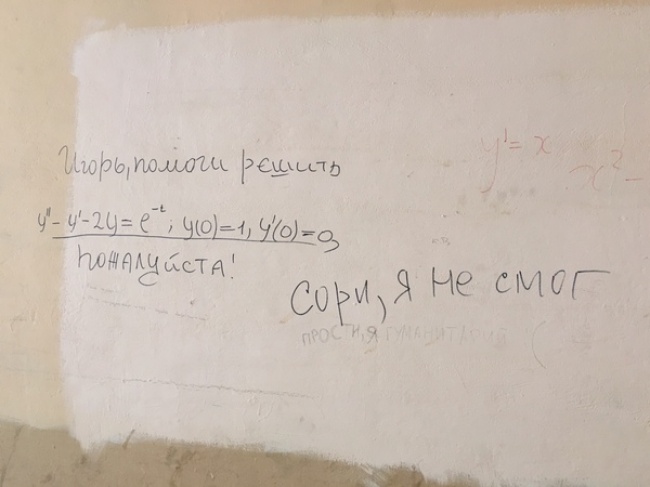 Игорь, помоги решить
y"- y'-2y= e^-t; y(0)=1, y'(0)=0,
пожалуйста!
y' = x
x² -
сори, я не смог
ПРОСТИ, Я ГУМАНИТАРИЙ (